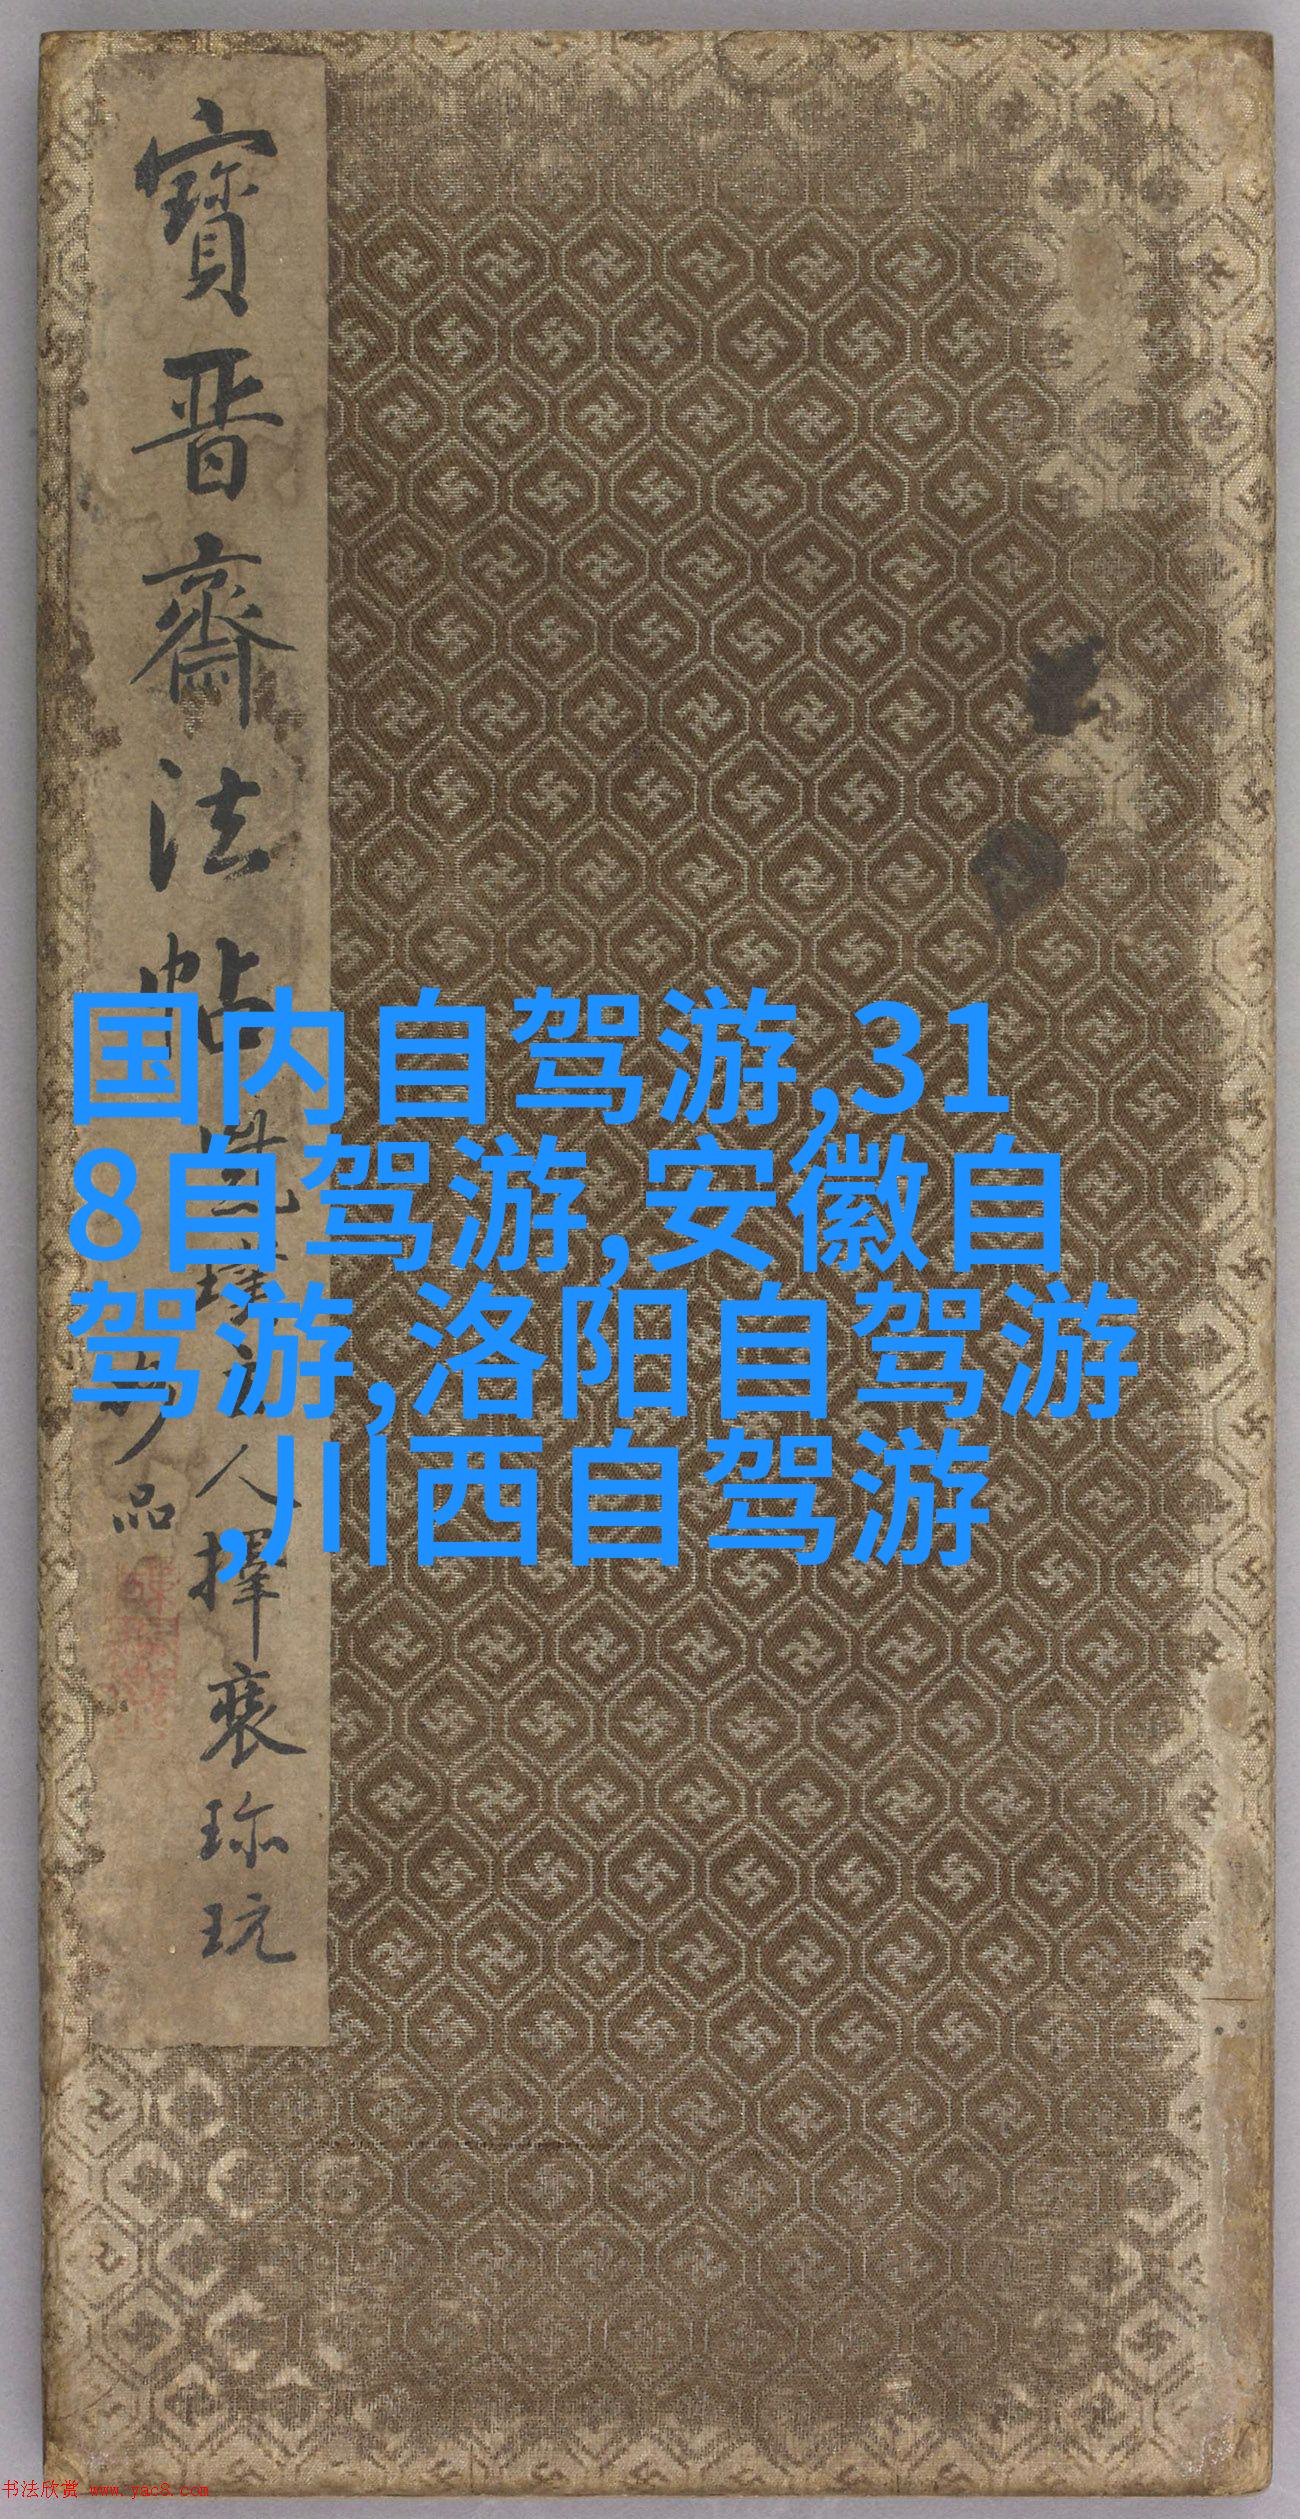 寶晉齋法帖
人擇裘珎玩
品
国内自驾游,31
8自驾游,安徽自
驾游,洛阳自驾游
,川西自驾游
书法欣赏 www.yac8.com